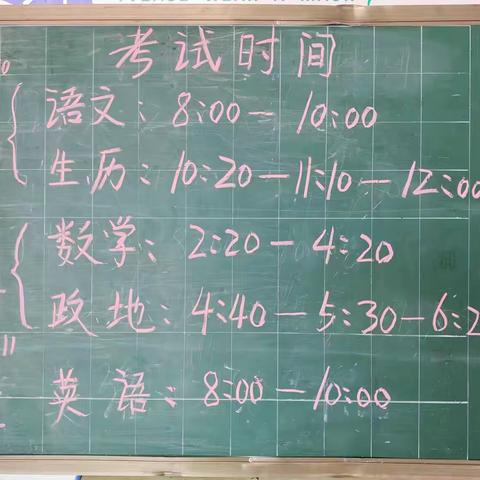 考试时间
语文：8:00—10:00
生.历：10:20—11:10—12:00
数学：2:20—4:20
政.地：4:40—5:30—6:2
11
英语：8:00—10:00